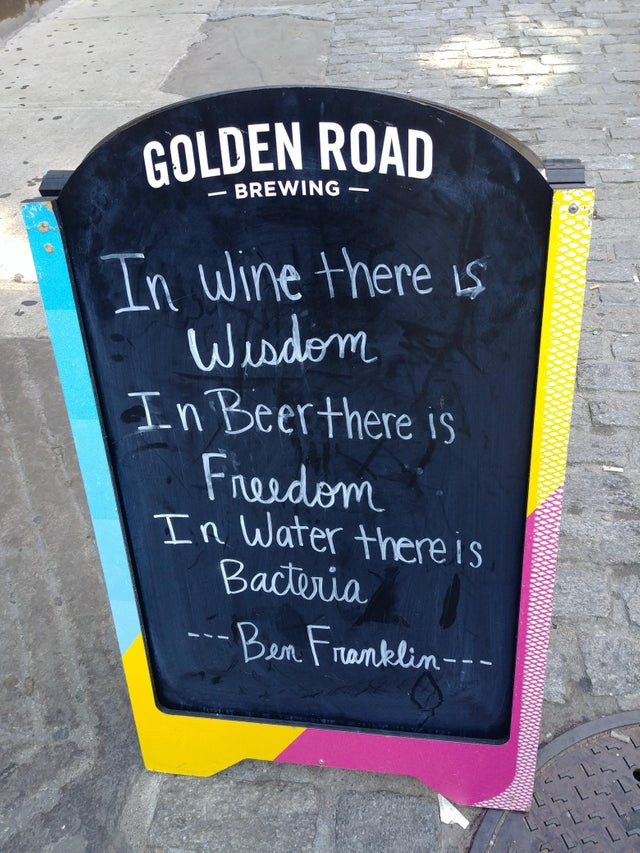 GOLDEN ROAD
— BREWING —
In Wine there is
Wisdom
In Beer there is
Freedom
In Water there is
Bacteria
--- Ben Franklin ---